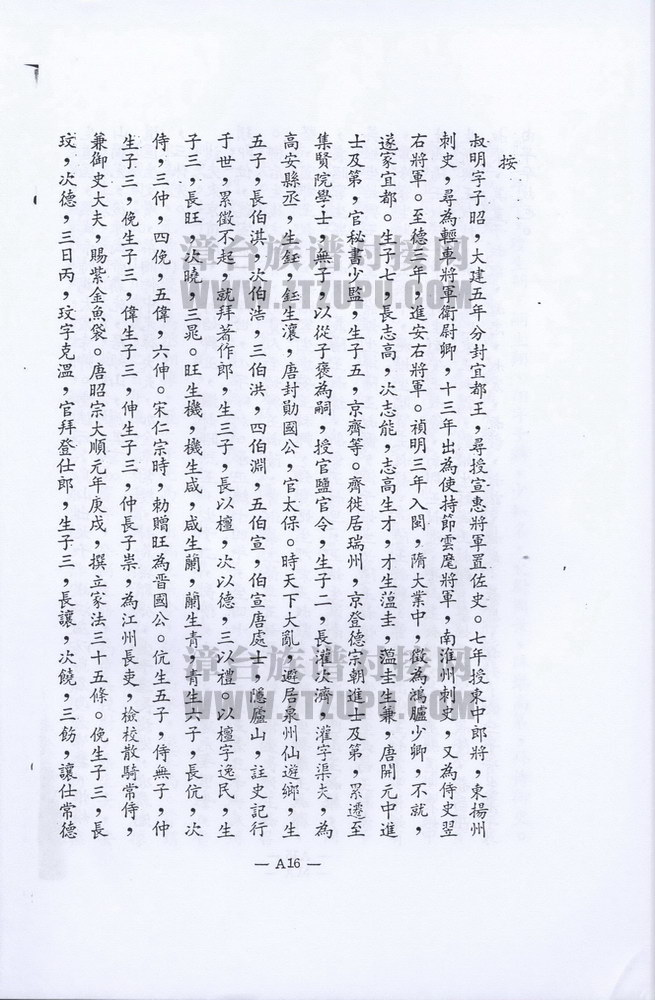 按
叔明字子昭，大建五年分封宜都王，尋授宣惠將軍置佐史。七年授東中郎將，東揚州
刺史，尋為輕車將軍衛尉卿，十三年出為使持節雲麾將軍，南淮州刺史，又為侍史翌
右將軍。至德三年，進安右將軍。禎明三年入関，隋大業中，徵為鴻臚少卿，不就，
遂家宜都。生子七，長志高，次志能，志高生才，才生薀圭，薀圭生兼，唐開元中進
士及第，官秘書少監，生子五，京齊等。齊徙居瑞州，京登德宗朝進士及第，累遷至
集賢院學士，無子，以從子褒為嗣，授官鹽官令，生子二，長灌次濟，灌字渠夫，為
高安縣丞，生鈺，鈺生瀼，唐封勛國公，官太保。時天下大亂，避居泉州仙遊鄉，生
五子，長伯淇，次伯浩，三伯洪，四伯淵，五伯宣，伯宣唐處士，隱廬山，註史記行
于世，累徵不起，就拜著作郎，生三子，長以檀，次以德，三以禮。以檀字逸民，生
子三，長旺，次曉，三晁。旺生機，機生咸，咸生蘭，蘭生青，青生六子，長伉，次
侍，三仲，四俛，五偉，六伸。宋仁宗時，勅贈旺為晋國公。伉生五子，侍無子，仲
生子三，俛生子三，偉生子三，伸生子三，仲長子崇，為江州長吏，檢校散騎常侍，
兼御史大夫，賜紫金魚袋。唐昭宗大順元年庚戌，撰立家法三十五條。俛生子三，長
玟，次德，三曰丙，玟字克溫，官拜登仕郎，生子三，長讓，次饒，三飭，讓仕常德
— A16 —
漳台族谱对接网
WWW.ZTZUPU.COM
漳台族谱对接网
WWW.ZTZUPU.COM